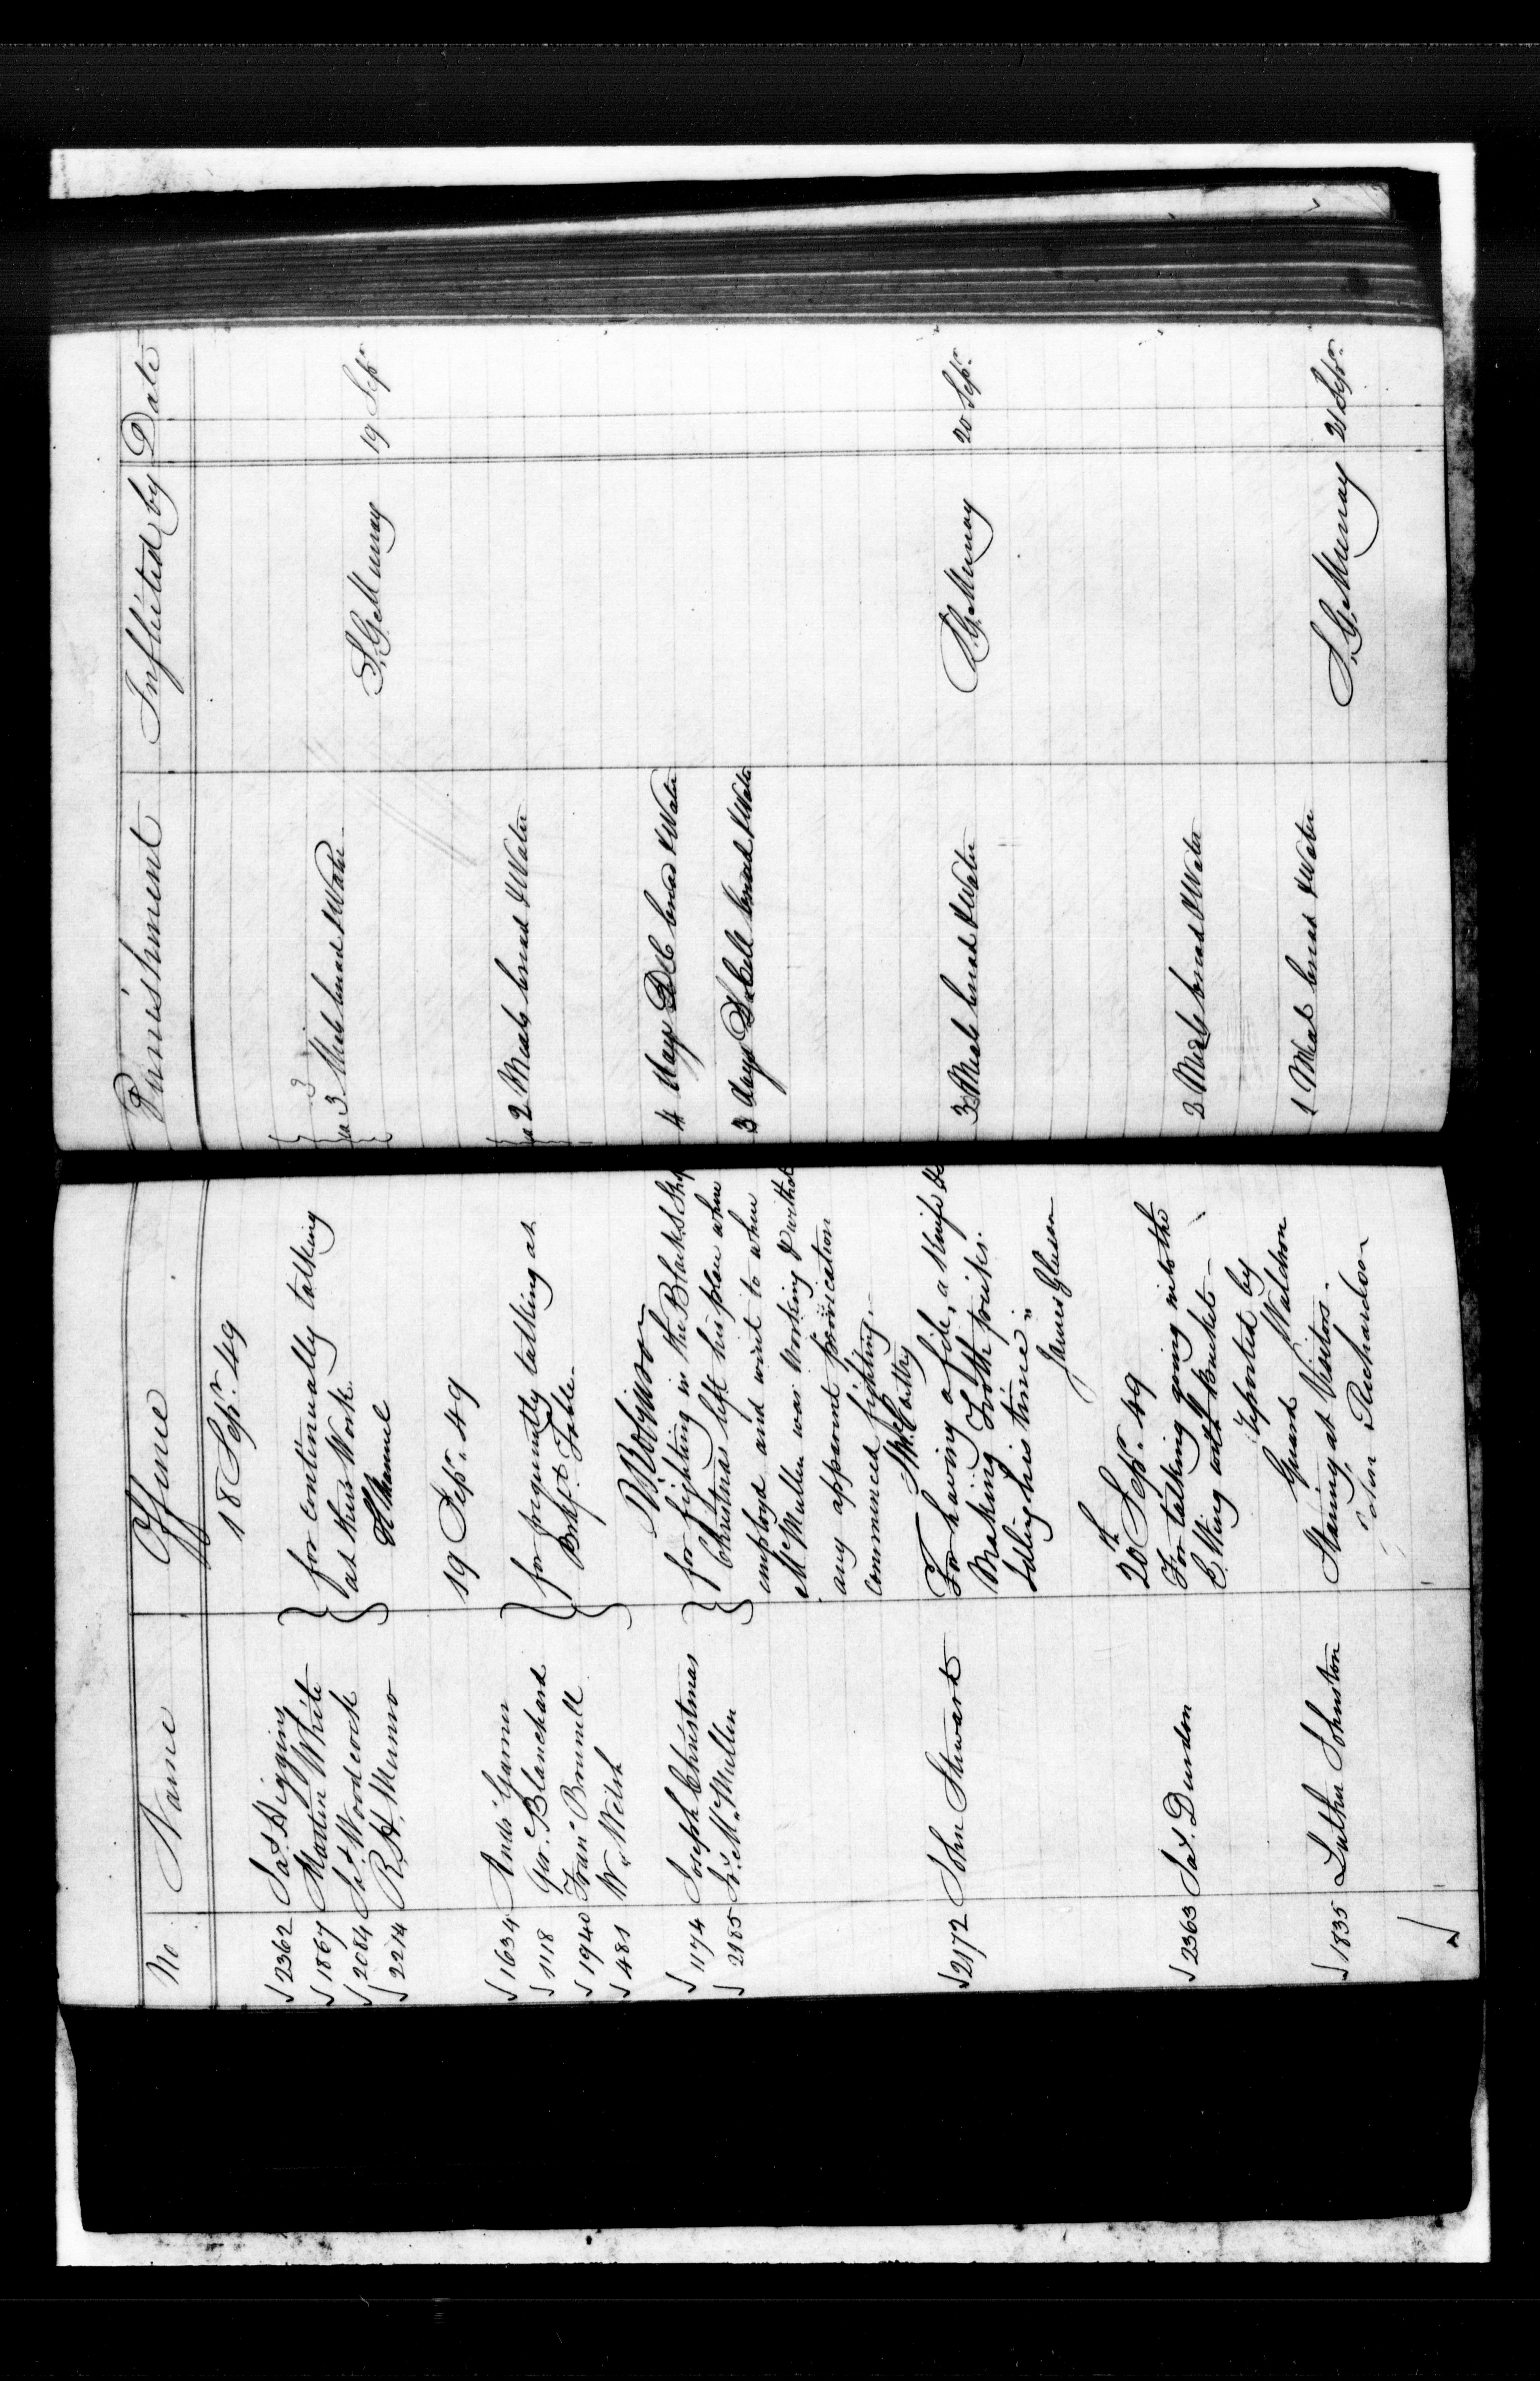 No Name Offence Punishment Inflicted by Date
18 Sepr. 49
2362 Jas. Higgins
1867 Martin White for continually talking 3 Meals bread & Water
2084 Js. Woodcock at their Work.
2214 R. H. Munro S. G. Murray 19 Sepr
19 Sepr. 49
1634 Andw Garner for frequently talking at 2 Meals bread & Water
1118 Geo. Blanchard Brkft Table
1940 Fran Brunell
481 Wm Welsh B. Robinson
1174 Joseph Christmas for fighting in the Blacks Shop 4 days bread & Water
2185 Js. McMullen Christmas left his place where 3 days bread & Water
employed and went to where
McMullen was working & without
any apparent provication
commenced fighting.
McCarthy
2172 John Stewart For having a file, a Knife & 3 Meals bread & Water S. G. Murray 20 Sepr.
Making Tooth picks.
Idling his time "
James Gleeson
20th Sepr. 49
2363 Jas. Dundon For talking going into the 2 Meals bread & Water
E. Wing with buckets
Reported by
Guard Waldron 1 Meal bread & Water
1835 Luther Johnston Staring at Visitors. S. G. Murray 21 Sepr.
John Richardson